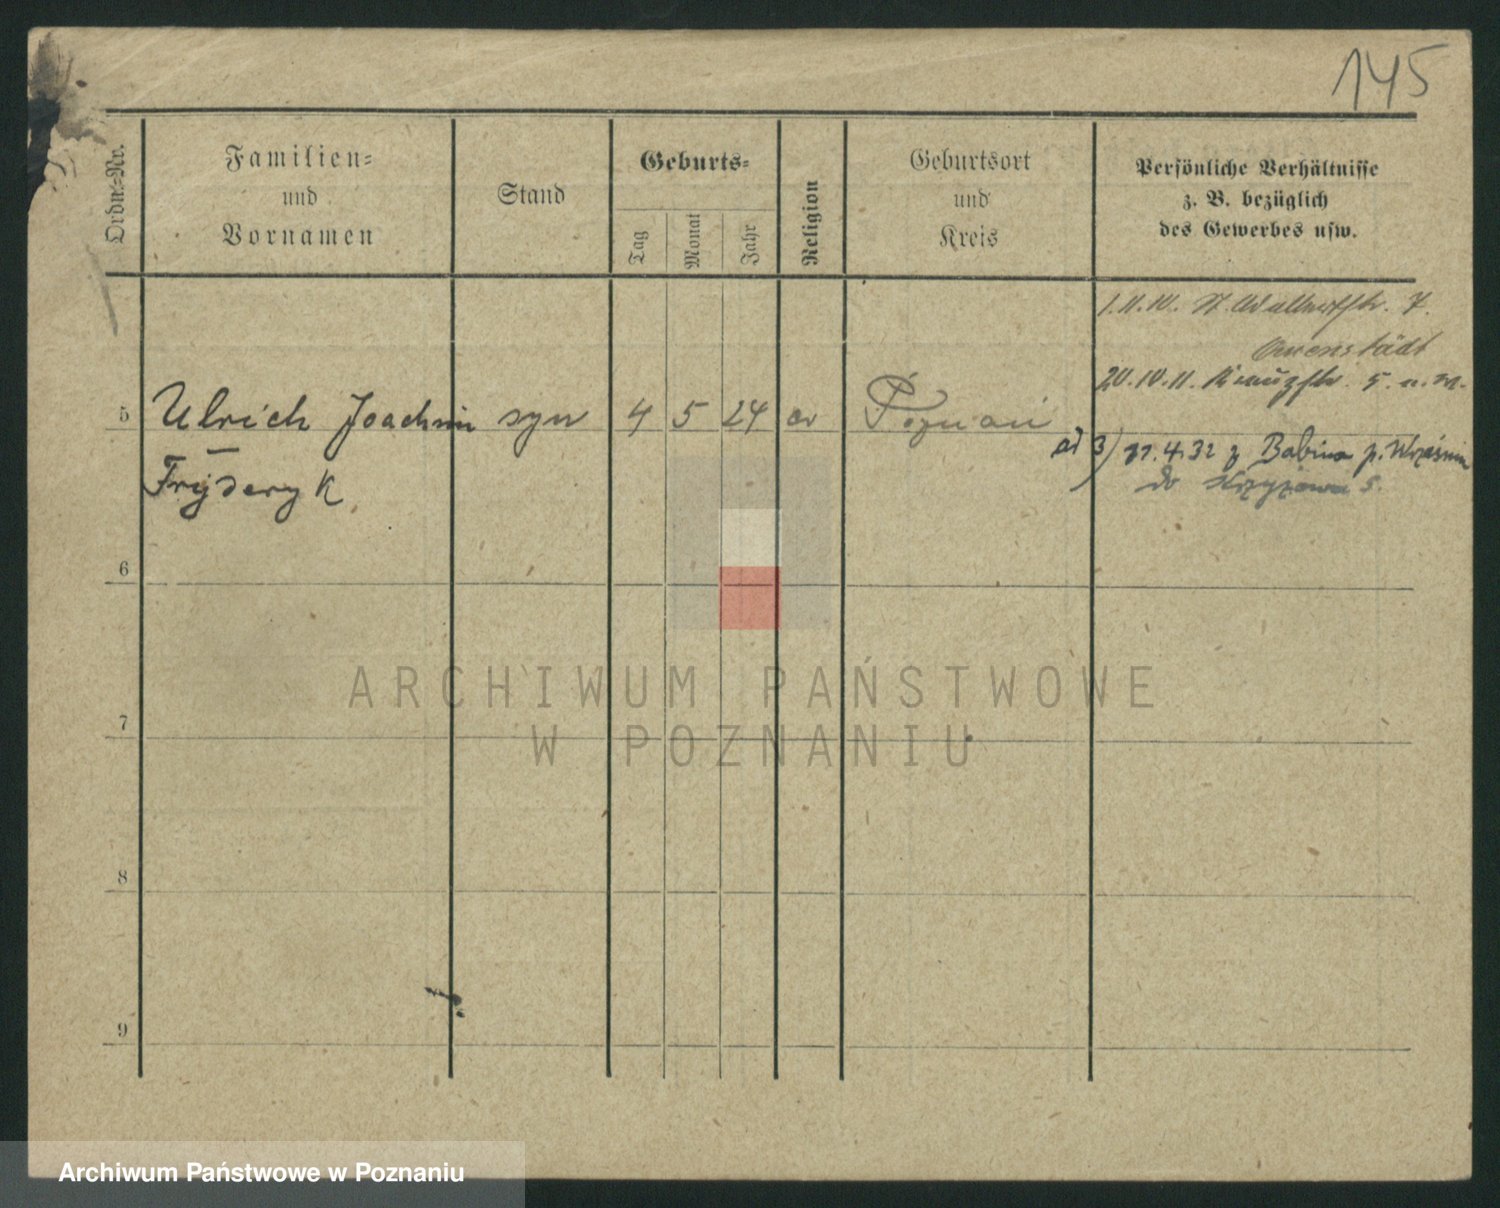 145
Ordn.-Nr.
Familien-
und
Vornamen
Stand
Geburts-
Tag
Monat
Jahr
Religion
Geburtsort
und
Kreis
Persönliche Verhältnisse
z. B. bezüglich
des Gewerbes usw.
1.11.10. St. Adalbertstr. 7.
20.10.11. Kreuzstr. 5.
5 Ulrich Joachim syn 4 5 24 ev Poznań
Fryderyk
ad 3) 4.32 z Babina p. Września
do Krzyżowa 5.
6
7
8
9
ARCHIWUM PAŃSTWOWE
W POZNANIU
Archiwum Państwowe w Poznaniu